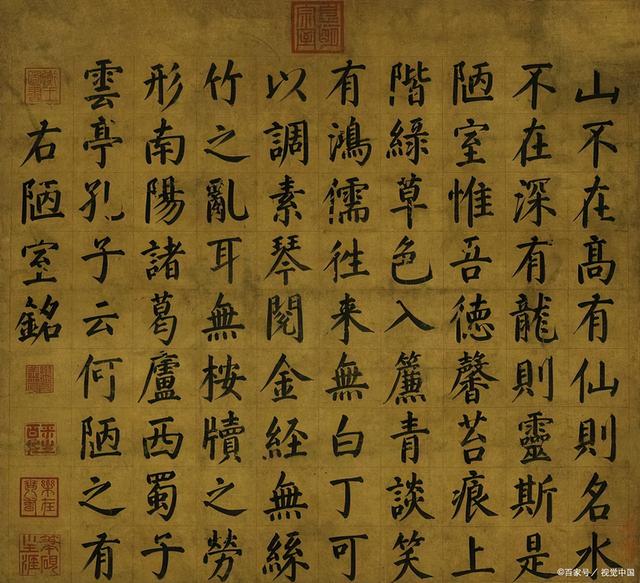 山不在髙有仙則名水
不在深有龍則靈斯是
陋室惟吾徳馨苔痕上
階綠草色入簾青談笑
有鴻儒徃来無白丁可
以調素琴閱金経無絲
竹之亂耳無桉牘之勞
形南陽諸葛廬西蜀子
雲亭孔子云何陋之有
右陋室銘
©百家号／视觉中国